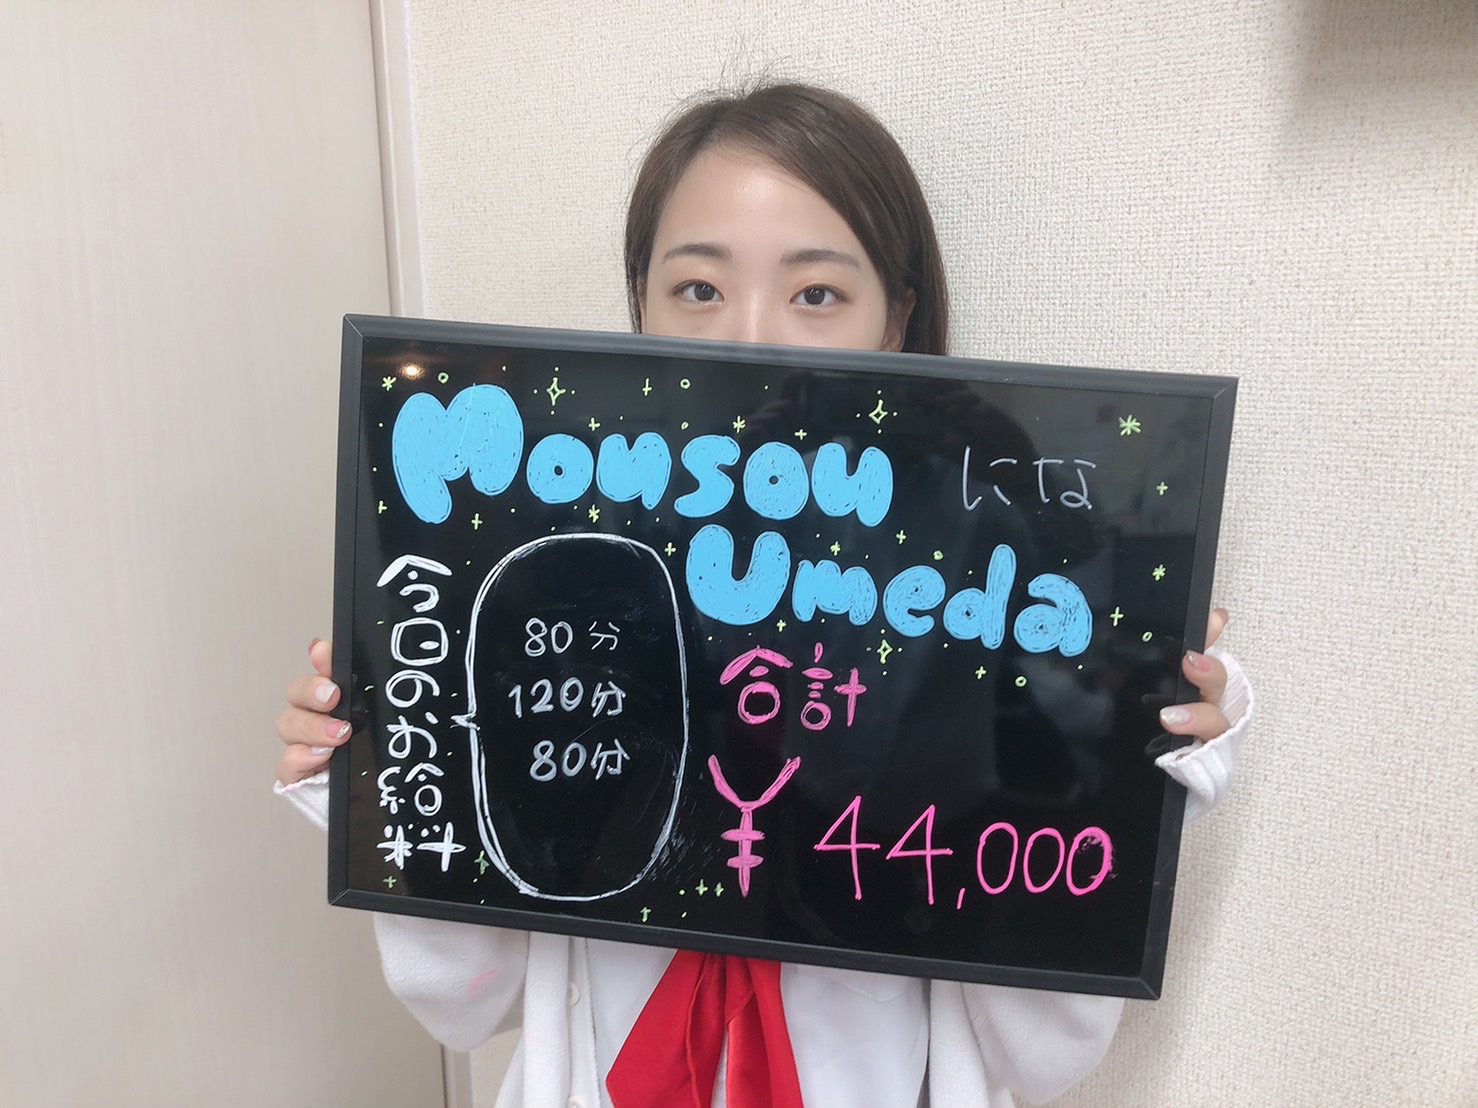 Mousou にな
Umeda
今日のお給料
80分
120分
80分
合計
¥ 44,000